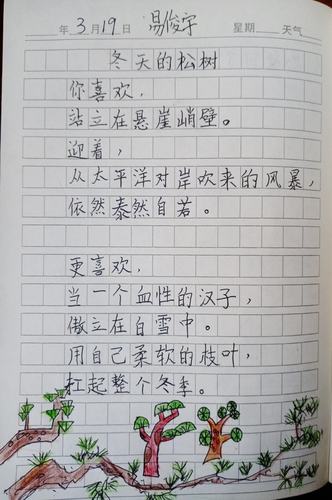 年3月19日 易俊宇 星期 天气
冬天的松树
你喜欢，
站立在悬崖峭壁。
迎着，
从太平洋对岸吹来的风暴，
依然泰然自若。
更喜欢，
当一个血性的汉子，
傲立在白雪中。
用自己柔软的枝叶，
扛起整个冬季。